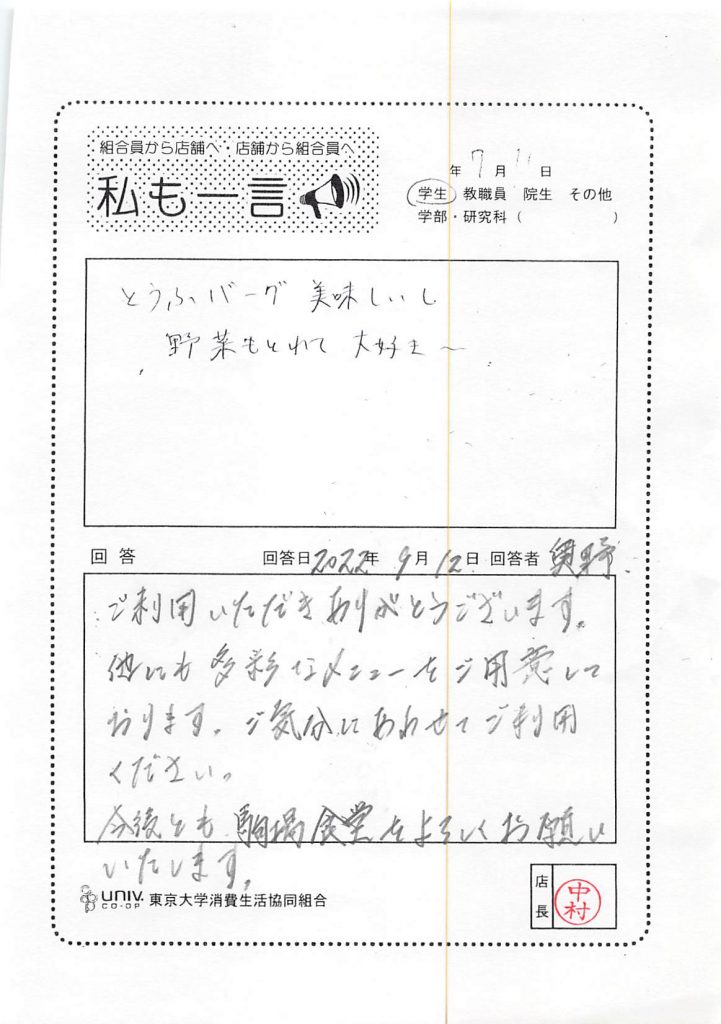 組合員から店舗へ・店舗から組合員へ
私も一言
年 7月 11日
学生 教職員 院生 その他
学部・研究科（ ）
とうふバーグ 美味しいし
野菜もとれて 大好き〜
回答 回答日 2022年 9月 12日 回答者 奥野
ご利用いただきありがとうございます。
他にも多彩なメニューをご用意して
おります。ご気分にあわせてご利用
ください。
今後とも 駒場食堂をよろしくお願い
いたします。
UNIV. CO-OP 東京大学消費生活協同組合
店長
中村